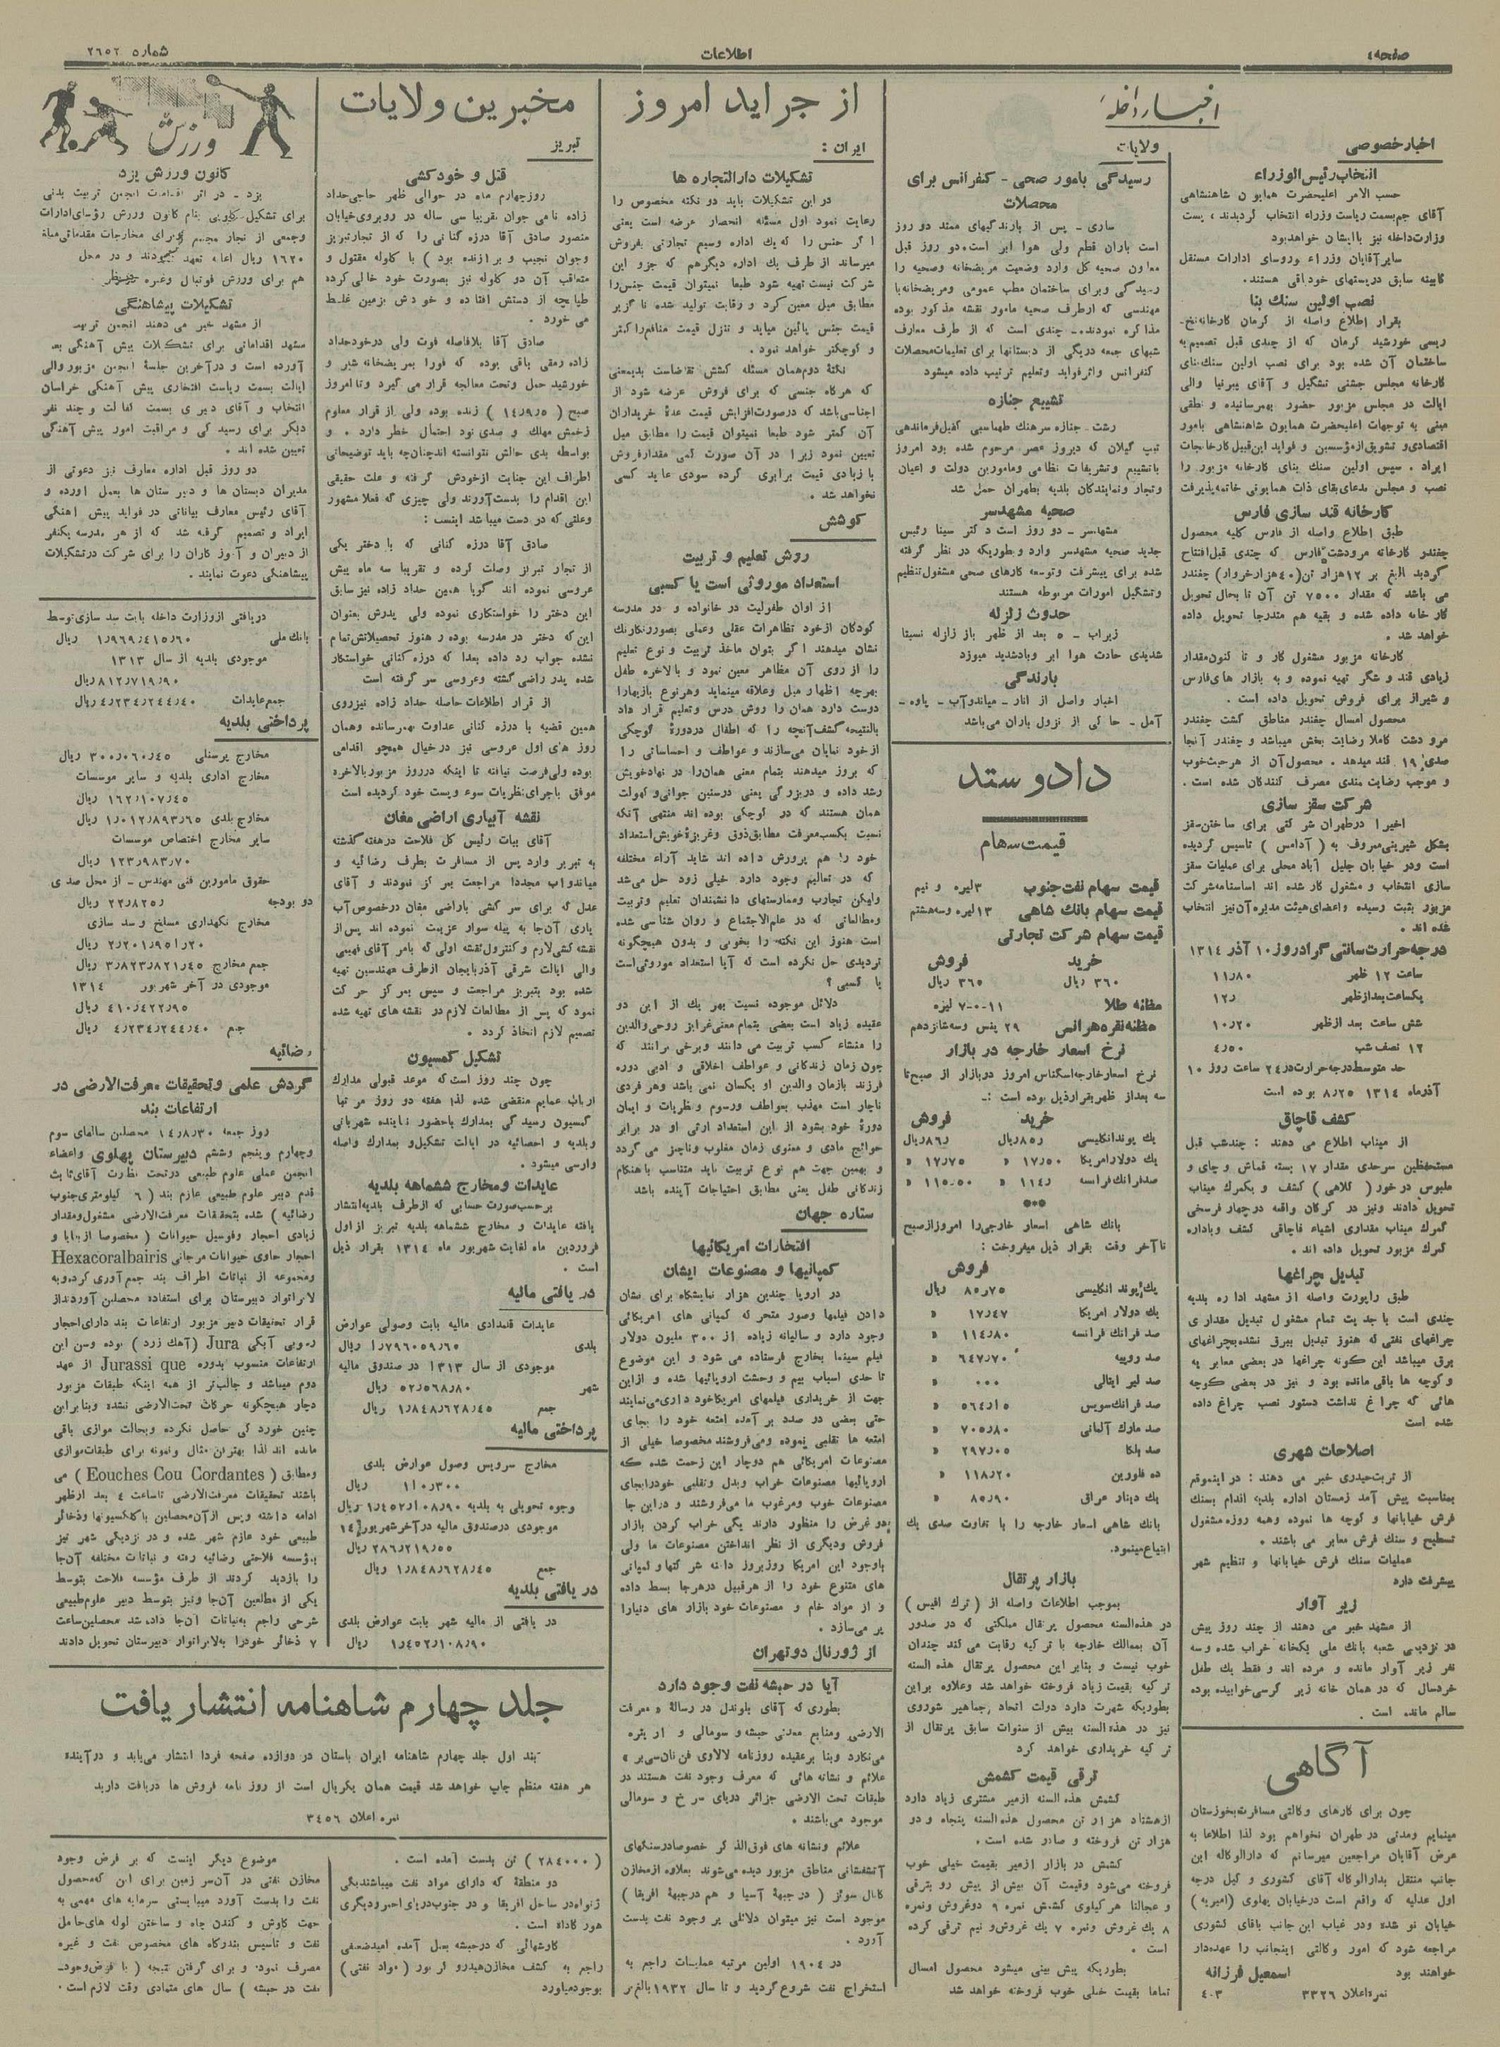 صفحه ۴
اطلاعات
شماره ۲۶۵۲
اخبار داخله
اخبار خصوصی
انتخاب رئیس‌الوزراء
حسب الامر اعلیحضرت همایون شاهنشاهی
آقای جم بسمت ریاست وزراء انتخاب گردیدند، پست
وزارت داخله نیز با ایشان خواهد بود
سایر آقایان وزراء و روسای ادارات مستقل
کابینه سابق در پستهای خود باقی هستند.
نصب اولین سنك بنا
بقرار اطلاع واصله از کرمان کارخانه نخ-
ریسی خورشید کرمان که از چندی قبل تصمیم به
ساختمان آن شده بود برای نصب اولین سنك بنای
کارخانه مجلس جشنی تشکیل و آقای والی
ایالت در مجلس مزبور حضور بهمرسانیده و نطقی
مبنی به توجهات اعلیحضرت همایون شاهنشاهی بامور
اقتصادی و تشویق از مؤسسین و فواید این قبیل کارخانجات
ایراد . سپس اولین سنك بنای کارخانه مزبور را
نصب و مجلس بدعای بقای ذات همایونی خاتمه پذیرفت
کارخانه قند سازی فارس
طبق اطلاع واصله از فارس کلیه محصول
چغندر کارخانه مرودشت فارس که چندی قبل افتتاح
گردید بالغ بر ۱۲ هزار تن (۴۰ هزار خروار) چغندر
می باشد که مقدار ۷۵۰۰ تن آن تا بحال تحویل
کارخانه داده شده و بقیه هم متدرجا تحویل داده
خواهد شد .
کارخانه مزبور مشغول کار و تا کنون مقدار
زیادی قند و شکر تهیه نموده و به بازار های فارس
و شیراز برای فروش تحویل داده است .
محصول امسال چغندر مناطق کشت چغندر
مرو دشت کاملا رضایت بخش میباشد و چغندر آنجا
صدی ۱۹ قند میدهد . محصول آن از هر حیث خوب
و موجب رضایت مندی مصرف کنندگان شده است .
شرکت سقز سازی
اخیرا در طهران شرکتی برای ساختن سقز
بشکل شیرینی معروف به ( آدامس ) تاسیس گردیده
است و در خیابان جلیل آباد محلی برای عملیات سقز
سازی انتخاب و مشغول کار شده اند اساسنامه شرکت
مزبور بثبت رسیده و اعضای هیئت مدیره آن نیز انتخاب
شده اند .
درجه حرارت سانتی گراد روز ۱۰ آذر ۱۳۱۴
ساعت ۱۲ ظهر ۱۱٫۸۰
یکساعت بعد از ظهر ۱۲٫
شش ساعت بعد از ظهر ۱۰٫۲۰
۱۲ نصف شب ۴٫۵۰
حد متوسط درجه حرارت در ۲۴ ساعت روز ۱۰
آذر ماه ۱۳۱۴ ۸٫۲۵ بوده است
کشف قاچاق
از میناب اطلاع می دهند : چند شب قبل
مستحفظین سرحدی مقدار ۱۷ بسته قماش و چای و
ملبوس در خور ( کلاهی ) کشف و بگمرك میناب
تحویل دادند و نیز در کرگان واقعه در چهار فرسخی
گمرك میناب مقداری اشیاء قاچاقی کشف و باداره
گمرك مزبور تحویل داده اند .
تبدیل چراغها
طبق راپورت واصله از مشهد اداره بلدیه
چندی است با جدیت تمام مشغول تبدیل مقداری
چراغهای نفتی که هنوز تبدیل ببرق نشده بچراغهای
برق میباشد این گونه چراغها در بعضی معابر به
و کوچه ها باقی مانده بود و نیز در بعضی کوچه
هائی که چراغ نداشت دستور نصب چراغ داده
شده است
اصلاحات شهری
از تربت حیدری خبر می دهند : در اینموقع
بمناسبت پیش آمد زمستان اداره بلدیه اقدام بسنك
فرش خیابانها و کوچه ها نموده و همه روزه مشغول
تسطیح و سنك فرش معابر می باشند .
عملیات سنك فرش خیابانها و تنظیم شهر
پیشرفت دارد
زیر آوار
از مشهد خبر می دهند از چند روز پیش
در نزدیکی شعبه بانك ملی یکخانه خراب شده و سه
نفر زیر آوار مانده و مرده اند و فقط یك طفل
خردسال که در همان خانه زیر کرسی خوابیده بوده
سالم مانده است .
آگاهی
چون برای کارهای وکالتی مسافرت بخوزستان
مینمایم و مدتی در طهران نخواهم بود لذا اطلاعا به
عرض آقایان مراجعین میرسانم که دارالوکاله این
جانب منتقل بدارالوکاله آقای کشوری و کیل درجه
اول عدلیه که واقع است در خیابان پهلوی (امیریه)
خیابان نو شده و در غیاب این جانب باقای کشوری
مراجعه شود که امور وکالتی اینجانب را عهده دار
خواهند بود اسمعیل فرزانه
نمره اعلان ۳۳۲۶ ۴۰۳
ولایات
رسیدگی بامور صحی - کنفرانس برای
محصلات
ساری - پس از بارندگیهای ممتد دو روز
است باران قطع ولی هوا ابر است. دو روز قبل
معاون صحیه کل وارد وضعیت مریضخانه و صحیه را
رسیدگی و برای ساختمان مطب عمومی و مریضخانه با
مهندسی که از طرف صحیه مامور نقشه مذکور بوده
مذاکره نمودند. چندی است که از طرف معارف
شبهای جمعه در یکی از دبستانها برای تعلیمات محصلات
کنفرانس و اثر فواید و تعلیم ترتیب داده میشود
تشییع جنازه
رشت . جنازه سرهنك طهماسبی کفیل فرماندهی
تیپ گیلان که دیروز عصر مرحوم شده بود امروز
با تشییع و تشریفات نظامی و مامورین دولت و اعیان
و تجار و نمایندگان بلدیه بطهران حمل شد
صحیه مشهدسر
مشهدسر - دو روز است دکتر سینا رئیس
جدید صحیه مشهدسر وارد و بطوریکه در نظر گرفته
شده برای پیشرفت و توسعه کارهای صحی مشغول تنظیم
و تشکیل امورات مربوطه هستند
حدوث زلزله
زیراب - ۵ بعد از ظهر باز زلزله نسبتا
شدیدی حادث هوا ابر و باد شدید میوزد
بارندگی
اخبار واصل از انار - میاندوآب - پاوه -
آمل - حاکی از نزول باران می باشد
داد و ستد
قیمت سهام
قیمت سهام نفت جنوب ۳ لیره و نیم
قیمت سهام بانك شاهی ۱۳ لیره و سه هشتم
قیمت سهام شرکت تجارتی
خرید فروش
۳۶۰ ریال ۳۶۵ ریال
مظنه طلا ۱۱-۰-۷ لیره
مظنه نقره هرانس ۲۹ پنس و سه شانزدهم
نرخ اسعار خارجه در بازار
نرخ اسعار خارجه اسکناس امروز در بازار از صبح تا
سه بعد از ظهر بقرار ذیل بوده است :-
خرید فروش
یك پوند انگلیسی ۸۵٫ ریال ۸۶٫ ریال
یك دولار امریکا ۱۷٫۵۰ » ۱۷٫۷۵ »
صد فرانك فرانسه ۱۱۴٫ » ۱۱۵٫۵۰ »
***
بانك شاهی اسعار خارجی را امروز از صبح
تا آخر وقت بقرار ذیل میفروخت :
فروش
یك پوند انگلیسی ۸۵٫۷۵ ریال
یك دولار امریکا ۱۷٫۴۷ »
صد فرانك فرانسه ۱۱۴٫۸۰ »
صد روپیه ۶۴۷٫۷۰ »
صد لیر ایتالی ۰۰۰ »
صد فرانك سویس ۵۶۴٫۱۵ »
صد مارك آلمانی ۷۰۵٫۸۰ »
صد بلگا ۲۹۷٫۰۵ »
ده فلورین ۱۱۸٫۲۰ »
یك دینار عراق ۸۵٫۹۰ »
بانك شاهی اسعار خارجه را با تفاوت صدی یك
ابتیاع مینمود.
بازار پرتقال
بموجب اطلاعات واصله از ( ترك افیس )
در هذه السنه محصول پرتقال مملکتی که در صدور
آن بممالك خارجه با ترکیه رقابت می کند چندان
خوب نیست و بنابر این محصول پرتقال هذه السنه
ترکیه بقیمت زیاد فروخته خواهد شد و علاوه بر این
بطوریکه شهرت دارد دولت اتحاد جماهیر شوروی
نیز در هذه السنه بیش از سنوات سابق پرتقال از
ترکیه خریداری خواهد کرد
ترقی قیمت کشمش
کشمش هذه السنه ازمیر مشتری زیاد دارد
از هشتاد هزار تن محصول هذه السنه پنجاه و دو
هزار تن فروخته و صادر شده است .
کشمش در بازار ازمیر بقیمت خیلی خوب
فروخته می شود و قیمت آن بیش از پیش رو بترقی
و عجالتا هر کیلوی کشمش نمره ۹ دو غروش و نمره
۸ یك غروش و نمره ۷ یك غروش و نیم ترقی کرده
است .
بطوریکه پیش بینی میشود محصول امسال
تماما بقیمت خیلی خوب فروخته خواهد شد
از جراید امروز
ایران :
تشکیلات دارالتجاره ها
در این تشکیلات باید دو نکته مخصوص را
رعایت نمود اول مسئله انحصار عرضه است یعنی
اگر جنس را که یك اداره وسیم تجارتی بفروش
میرساند از طرف یك اداره دیگر هم که جزو این
شرکت نیست تهیه شود طبعا نمیتوان قیمت جنس را
مطابق میل معین کرد و رقابت تولید شده ناگزیر
قیمت جنس پائین میاید و تنزل قیمت منافع را کمتر
و کوچکتر خواهد نمود.
نکته دوم همان مسئله کشش تقاضاست بدیمعنی
که هرگاه جنسی که برای فروش عرضه شود از
اجناسی باشد که در صورت افزایش قیمت عده خریداران
آن کمتر شود طبعا نمیتوان قیمت را مطابق میل
تعیین نمود زیرا در آن صورت کمی مقدار فروش
با زیادی قیمت برابری کرده سودی عاید کسی
نخواهد شد .
کوشش
روش تعلیم و تربیت
استعداد موروثی است یا کسبی
از اوان طفولیت در خانواده و در مدرسه
کودکان از خود تظاهرات عقلی و عملی بصور رنگارنك
نشان میدهند اگر بتوان ماخذ تربیت و نوع تعلیم
را از روی آن مظاهر معین نمود و بالاخره طفل
بهرچه اظهار میل و علاقه مینماید و هر نوع بازیها را
دوست دارد همان را روش درس و تعلیم قرار داد
بالنتیجه کشف آنچه را که اطفال در دوره کوچکی
از خود نمایان می سازند و عواطف و احساساتی را
که بروز میدهند بتمام معنی همان را در نهاد خویش
رشد داده و در بزرگی یعنی در سنین جوانی و کهولت
همان هستند که در کوچکی بوده اند منتهی آنکه
نسبت بکسب معرفت مطابق ذوق و غریزه خویش استعداد
خود را هم پرورش داده اند شاید آراء مختلفه
که در تعالیم وجود دارد خیلی زود حل می شد
ولیکن تجارب و ممارستهای دانشمندان تعلیم و تربیت
و مطالعاتی که در علم الاجتماع و روان شناسی شده
است هنوز این نکته را بخوبی و بدون هیچگونه
تردیدی حل نکرده است که آیا استعداد موروثی است
یا کسبی ؟
دلائل موجوده نسبت بهر یك از این دو
عقیده زیاد است بعضی بتمام معنی غرایز روحی والدین
را منشاء کسب تربیت می دانند و برخی برانند که
چون زمان زندگانی و عواطف اخلاقی و ادبی دوره
فرزند با زمان والدین او یکسان نمی باشد و هر فردی
ناچار است مهذب بعواطف و رسوم و نظریات و ایمان
دوره خود بشود از این استعداد ارثی او در برابر
حوائج مادی و معنوی زمان مغلوب و ناچیز می گردد
و بهمین جهت هم نوع تربیت باید متناسب با هنگام
زندگانی طفل یعنی مطابق احتیاجات آینده باشد
ستاره جهان
افتخارات امریکائیها
کمپانیها و مصنوعات ایشان
در اروپا چندین هزار نمایشگاه برای نشان
دادن فیلمها وصور متحرکه کمپانی های امریکائی
وجود دارد و سالیانه زیاده از ۳۰۰ ملیون دولار
فیلم سینما بخارج فرستاده می شود و این موضوع
تا حدی اسباب بیم و وحشت اروپائیها شده و از این
جهت از خریداری فیلمهای امریکا خود داری می نمایند
حتی بعضی در صدد بر آمده امتعه خود را بجای
امتعه ها تقلبی نموده و می فروشند مخصوصا خیلی از
مصنوعات امریکائی هم دوچار این زحمت شده که
اروپائیها مصنوعات خراب و بدل و تقلبی خود را بجای
مصنوعات خوب و مرغوب ما می فروشند و در این جا
دو غرض را منظور دارند یکی خراب کردن بازار
فروش و دیگری از نظر انداختن مصنوعات ما ولی
باوجود این امریکا روز بروز دامنه شرکتها و کمپانی
های متنوع خود را از هر قبیل در هر جا بسط داده
و از مواد خام و مصنوعات خود بازار های دنیا را
پر می سازد .
از ژورنال دو تهران
آیا در حبشه نفت وجود دارد
بطوری که آقای باوندل در رساله « معرفت
الارضی و منابع معدنی حبشه و سومالی و اریتره
می نگارد و بنا بر عقیده روزنامه لالاوی فن نان سی بر »
علائم و نشانه هائی که معرف وجود نفت هستند در
طبقات تحت الارضی جزائر دریای سرخ و سومالی
موجود می باشند .
علائم و نشانه های فوق الذکر خصوصا در سنگهای
آتشفشانی مناطق مزبور دیده می شوند بعلاوه از مخازن
کانال سوئز ( در جبهة آسیا و هم در جبهة افریقا )
موجود است نیز میتوان دلائلی بر وجود نفت بدست
آورد .
در ۱۹۰۴ اولین مرتبه عملیات راجع به
استخراج نفت شروع گردید و تا سال ۱۹۳۲ بالغ بر
( ۲۸۴۰۰۰ ) تن بدست آمده است .
دو منطقه که دارای مواد نفت میباشند یکی
ژنوا در ساحل افریقا و در جنوب دریای احمر و دیگری
هورکاداه است .
کاوشهائی که در حبشه بعمل آمده امید ضعیفی
راجع به کشف مخازن هیدرو کربور (مواد نفتی )
بوجود میاورد
موضوع دیگر اینست که بر فرض وجود
مخازن نفتی در آن سر زمین برای این که محصول
نفت را بدست آورد میبایستی سرمایه های مهمی به
جهت کاوش و کندن چاه و ساختن لوله های حامل
نفت و تاسیس بندرگاه های مخصوص نفت و غیره
مصرف نمود، و برای گرفتن نتیجه ( با فرض وجود-
نفت در حبشه ) سال های متمادی وقت لازم است .
مخبرین ولایات
تبریز
قتل و خودکشی
روز چهارم ماه در حوالی ظهر حاجی حداد
زاده نامی جوان تقریبا سی ساله در روبروی خیابان
منصور صادق آقا درزه کنانی را که از تجار تبریز
و جوان نجیب و برازنده بود ) با گلوله مقتول و
متعاقب آن دو گلوله نیز بصورت خود خالی کرده
طپانچه از دستش افتاده و خودش بزمین غلط
می خورد .
صادق آقا بلافاصله فوت ولی در خود حداد
زاده رمقی باقی بوده که فورا بمریضخانه شیر و
خورشید حمل و تحت معالجه قرار می گیرد و تا امروز
صبح ( ۱۴٫۹٫۵ ) زنده بوده ولی از قرار معلوم
زخمش مهلك و صدی نود احتمال خطر دارد . و
بواسطه بدی حالش نتوانسته اند چنانچه باید توضیحاتی
اطراف این جنایت از خودش گرفته و علت حقیقی
این اقدام را بدست آورند ولی چیزی که فعلا مشهور
و علتی که در دست میباشد اینست :
صادق آقا درزه کنانی که با دختر یکی
از تجار تبریز وصلت کرده و تقریبا سه ماه پیش
عروسی نموده اند گویا همین حداد زاده نیز سابق
این دختر را خواستگاری نموده ولی پدرش بعنوان
این که دختر در مدرسه بوده و هنوز تحصیلاتش تمام
نشده جواب رد داده بعدا که درزه کنانی خواستگار
شده پدر راضی گشته و عروسی سر گرفته است
از قرار اطلاعات حاصله حداد زاده نیز روی
همین قضیه با درزه کنانی عداوت بهم رسانده و همان
روز های اول عروسی نیز در خیال همچو اقدامی
بوده ولی فرصت نیافته تا اینکه در روز مزبور بالاخره
موفق باجرای نظریات سوء و پست خود گردیده است
نقشه آبیاری اراضی مغان
آقای بیات رئیس کل فلاحت در هفته گذشته
به تبریز وارد پس از مسافرت بطرف رضائیه و
میاندواب مجددا مراجعت بمرکز نمودند و آقای
عدل که برای سر کشی باراضی مغان در خصوص آب
یاری آنجا به پیله سوار عزیمت نموده اند پس از
نقشه کشی لازم و کنترول نقشه اولی که بامر آقای فهیمی
والی ایالت شرقی آذربایجان از طرف مهندسین تهیه
شده بود بتبریز مراجعت و سپس بمرکز حرکت
نمود که پس از مطالعات لازم در نقشه های تهیه شده
تصمیم لازم اتخاذ گردد .
تشکیل کمسیون
چون چند روز است که موعد قبولی مدارك
ارباب عمایم منقضی شده لذا هفته دو روز مرتبا
کمسیون رسیدگی بمدارك باحضور نماینده شهربانی
و بلدیه و احصائیه در ایالت تشکیل و بمدارك واصله
وارسی میشود .
عایدات و مخارج ششماهه بلدیه
بر حسب صورت حسابی که از طرف بلدیه انتشار
یافته عایدات و مخارج ششماهه بلدیه تبریز از اول
فروردین ماه لغایت شهریور ماه ۱۳۱۴ بقرار ذیل
است .
دریافتی مالیه
عایدات قلمدادی مالیه بابت وصولی عوارض
بلدی ۱٫۷۹۶۰۵۹٫۶۰ ریال
موجودی از سال ۱۳۱۳ در صندوق مالیه
شهر ۵۲٫۵۶۸٫۸۰ ریال
جمع ۱٫۸۴۸٫۶۲۸٫۴۵ ریال
پرداختی مالیه
مخارج سرویس وصول عوارض بلدی
۱۱۰٫۳۰۰ ریال
وجوه تحویلی به بلدیه ۱٫۴۵۲٫۱۰۸٫۹۰ ریال
موجودی در صندوق مالیه در آخر شهریور ۱۴
۲۸۶٫۲۱۹٫۵۵ ریال
جمع ۱٫۸۴۸٫۶۲۸٫۴۵ ریال
دریافتی بلدیه
دریافتی از مالیه شهر بابت عوارض بلدی
۱٫۴۵۲٫۱۰۸٫۹۰ ریال
ورزش
کانون ورزش یزد
یزد - در اثر اقدامات انجمن تربیت بدنی
برای تشکیل کلوپی بنام کانون ورزش رؤسای ادارات
و جمعی از تجار مجتمع و برای مخارجات مقدماتی مبلغ
۱۶۲۰ ریال اعانه تعهد نمودند و در محل
هم برای ورزش فوتبال و غیره
تشکیلات پیشاهنگی
از مشهد خبر می دهند انجمن تربیت
مشهد اقداماتی برای تشکیلات پیش آهنگی بعمل
آورده است و در آخرین جلسه انجمن مزبور والی
ایالت بسمت ریاست افتخاری پیش آهنگی خراسان
انتخاب و آقای دبیری بسمت کفالت و چند نفر
دیگر برای رسیدگی و مراقبت امور پیش آهنگی
تعیین شده اند .
دو روز قبل اداره معارف نیز دعوتی از
مدیران دبستان ها و دبیرستان ها بعمل آورده و
آقای رئیس معارف بیاناتی در فواید پیش آهنگی
ایراد و تصمیم گرفته شد که از هر مدرسه یکنفر
از دبیران و آموزگاران را برای شرکت در تشکیلات
پیشاهنگی دعوت نمایند .
دریافتی از وزارت داخله بابت سد سازی توسط
بانك ملی ۱٫۹۶۹٫۴۱۵٫۶۰ ریال
موجودی بلدیه از سال ۱۳۱۳
۸۱۲٫۷۱۹٫۹۰ ریال
جمع عایدات ۴٫۲۳۴٫۲۴۴٫۴۰ ریال
پرداختی بلدیه
مخارج پرسنلی ۳۰۰٫۰۶۰٫۴۵ ریال
مخارج اداری بلدیه و سایر موسسات
۱۶۲٫۱۰۷٫۴۵ ریال
مخارج بلدی ۱٫۰۱۲٫۸۹۳٫۶۵ ریال
سایر مخارج اختصاص موسسات
۱۲۳٫۹۸۳٫۷۰ ریال
حقوق مامورین فنی مهندس - از محل صدی
دو بودجه ۲۲٫۸۲۵٫ ریال
مخارج نگهداری مسلخ و سد سازی
۲٫۲۰۱٫۹۵۱٫۲۰ ریال
جمع مخارج ۳٫۸۲۳٫۸۲۱٫۴۵ ریال
موجودی در آخر شهریور ۱۳۱۴
۴۱۰٫۴۲۲٫۹۵ ریال
جمع ۴٫۲۳۴٫۲۴۴٫۴۰ ریال
رضائیه
گردش علمی و تحقیقات معرفت الارضی در
ارتفاعات بند
روز جمعه ۱۴٫۸٫۳۰ محصلین سالهای سوم
و چهارم و پنجم و ششم دبیرستان پهلوی و اعضاء
انجمن عملی علوم طبیعی در تحت نظارت آقای ثابت
قدم دبیر علوم طبیعی عازم بند ( ۶ کیلومتری جنوب
رضائیه ) شده بتحقیقات معرفت الارضی مشغول و مقدار
زیادی احجار و فوسیل حیوانات ( مخصوصا از بقایا و
احجار حاوی حیوانات مرجانی Hexacoralbairis
و مجموعه از نباتات اطراف بند جمع آوری کرده و به
لابراتوار دبیرستان برای استفاده محصلین آوردند از
قرار تحقیقات دبیر مزبور ارتفاعات بند دارای احجار
رسوبی آبکی Jura (آهك زرد ) بوده و سن این
ارتفاعات منسوب بدوره Jurassi que از عهد
دوم میباشد و جالب تر از همه اینکه طبقات مزبور
دچار هیچگونه حرکات تحت الارضی نشده و بنابراین
چنین خوردگی حاصل نکرده و بحالت موازی باقی
مانده اند لذا بهترین مثال و نمونه برای طبقات موازی
و مطابق ( Eouches Cou Cordantes ) می
باشند تحقیقات معرفت الارضی تا ساعت ۴ بعد از ظهر
ادامه داشته و پس از آن محصلین با کلکسیونها و ذخائر
طبیعی خود عازم شهر شده و در نزدیکی شهر نیز
بمؤسسه فلاحتی رضائیه رفته و نباتات مختلفه آن جا
را بازدید کردند از طرف مؤسسه فلاحت بتوسط
یکی از مطلعین آن جا و نیز بتوسط دبیر علوم طبیعی
شرحی راجع به نباتات آن جا داده شد محصلین ساعت
۷ ذخائر خود را به لابراتوار دبیرستان تحویل دادند
جلد چهارم شاهنامه انتشار یافت
بند اول جلد چهارم شاهنامه ایران باستان در دوازده صفحه فردا انتشار می یابد و در آینده
هر هفته منظم چاپ خواهد شد قیمت همان یکریال است از روز نامه فروش ها دریافت دارید
نمره اعلان ۳۴۵۶